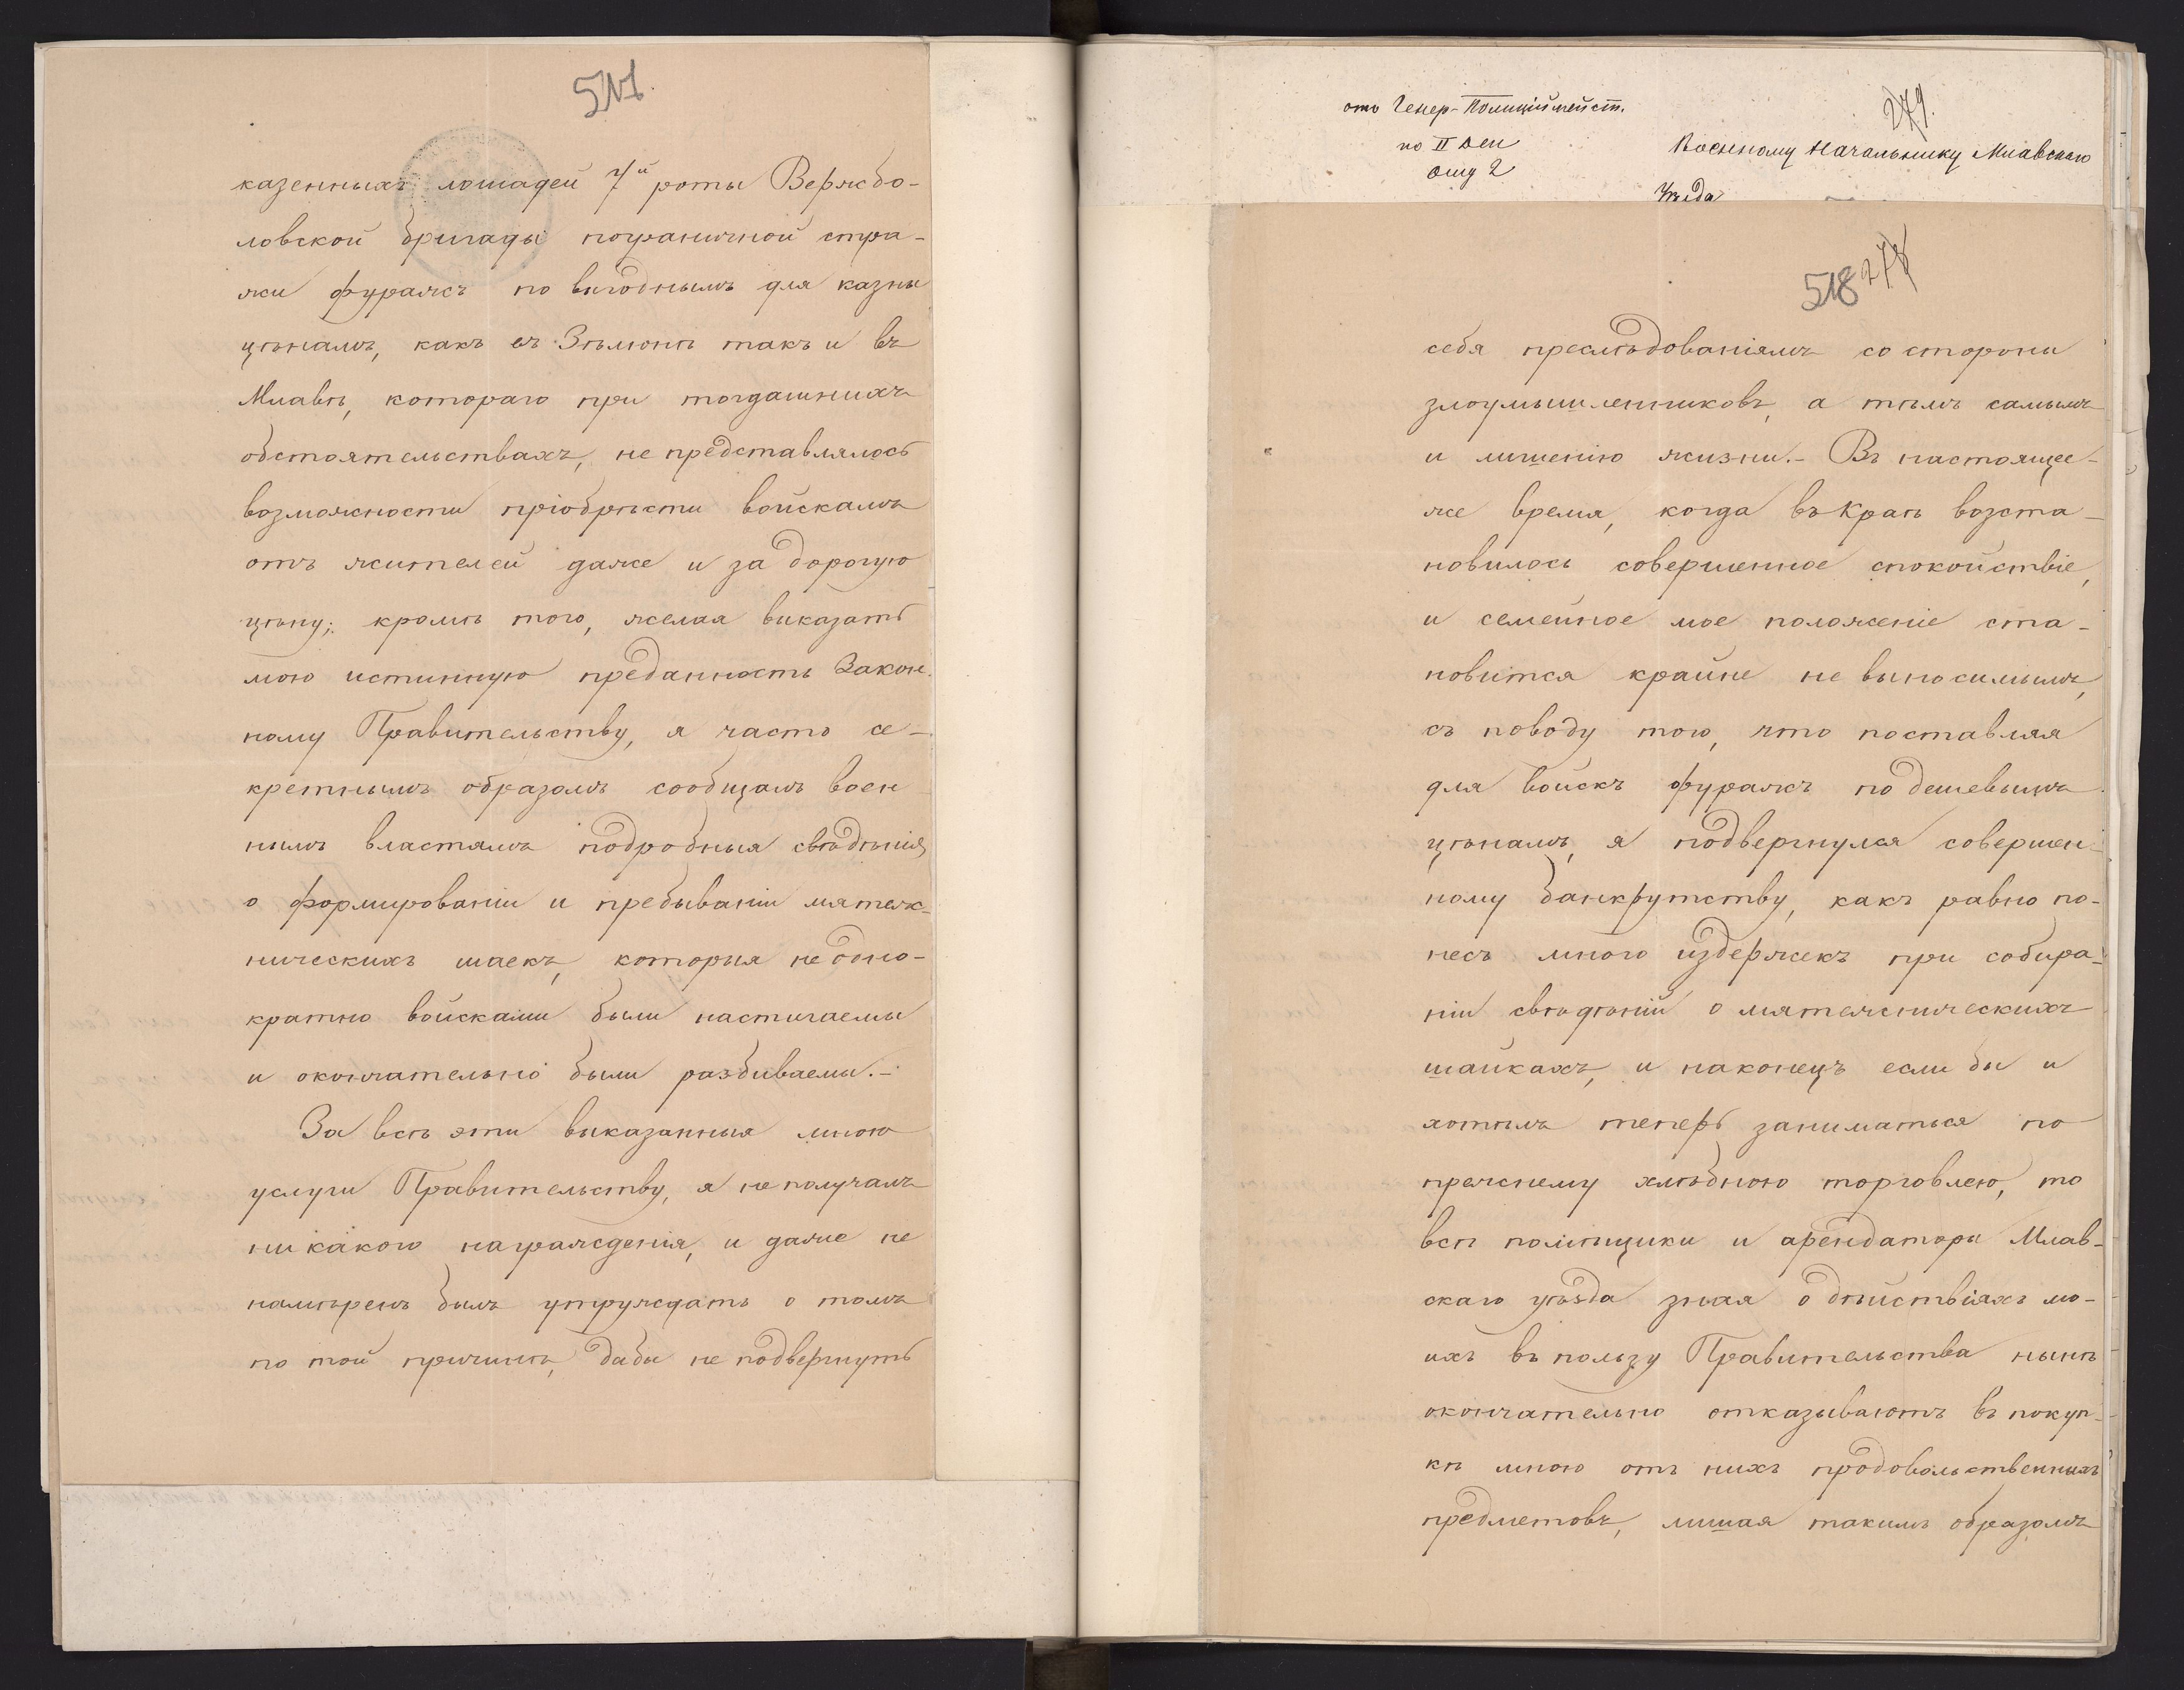 511
казенныхъ лошадей 7й роты Вержбо-
ловской бригады пограничной стра-
жи фуражъ по выгоднымъ для казны
цѣнамъ, какъ въ Зѣлюнѣ такъ и въ
Млавѣ, котораго при тогдашнихъ
обстоятельствахъ, не представлялось
возможности пріобрѣсти войскамъ
отъ жителей даже и за дорогую
цѣну; кромѣ того, желая выказать
мою истинную преданность Закон-
ному Правительству, я часто се-
кретнымъ образомъ сообщалъ воен
нымъ властямъ подробныя свѣдѣнія
о формированіи и пребываніи мятеж-
ническихъ шаекъ, которыя не одно-
кратно войсками были настигаемы
и окончательно были разбиваемы.-
За всѣ эти выказанныя мною
услуги Правительству, я не получалъ
ни какого награжденія, и даже не
намѣренъ былъ утруждать о томъ
по той причинѣ, дабы не подвергнуть
отъ Генер-Полиціймейст.
по II Ден
Отд 2
279.
Военному Начальнику Млавскаго
Уѣзда
518 278
себя преслѣдованіямъ со стороны
злоумышленниковъ, а тѣмъ самымъ
и лишенію жизни.- Въ настоящее-
же время, когда въ Краѣ возста-
новилось совершенное спокойствіе,
и семейное мое положеніе ста-
новится крайне не выносимымъ,
съ поводу того, что поставляя
для войскъ фуражъ по дешевымъ
цѣнамъ, я подвергнулся совершен-
ному банкрутству, какъ равно по-
несъ много издержекъ при собира-
ніи свѣдѣній о мятежническихъ
шайкахъ, и наконецъ если бы и
хотѣлъ теперь заниматься по
прежнему хлѣбною торговлею, то
всѣ помѣщики и арендаторы Млав-
скаго уѣзда зная о дѣйствіяхъ мо-
ихъ въ пользу Правительства нынѣ
окончательно отказываютъ въ покуп-
кѣ мною отъ нихъ продовольственныхъ
предметовъ, лишая такимъ образомъ